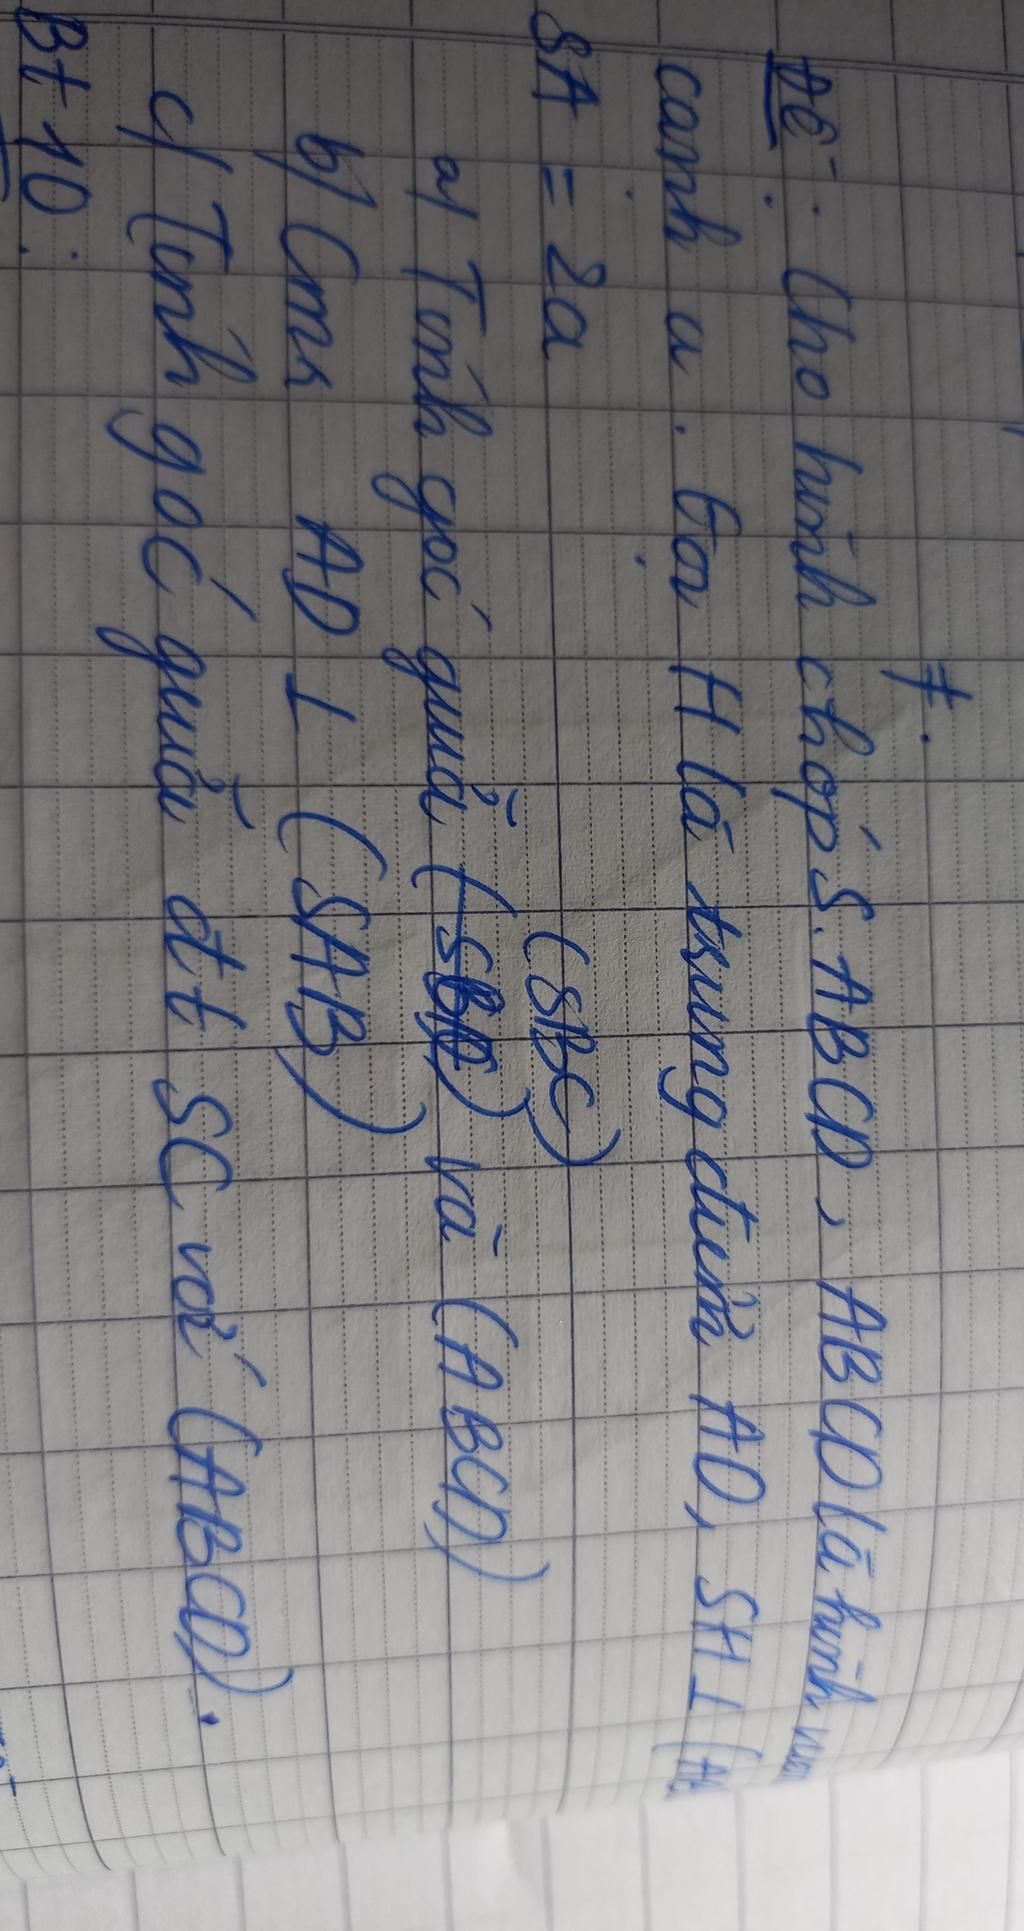 7.
Đề: Cho hình chóp S.ABCD, ABCD là hình
cạnh a. Gọi H là trung điểm AD, SH ⊥ (
SA = 2a
(SBC)
a/ Tính góc giữa và (ABCD)
b/ Cmr AD ⊥ (SAB)
c/ Tính góc giữa đt SC với (ABCD).
Bt 10: